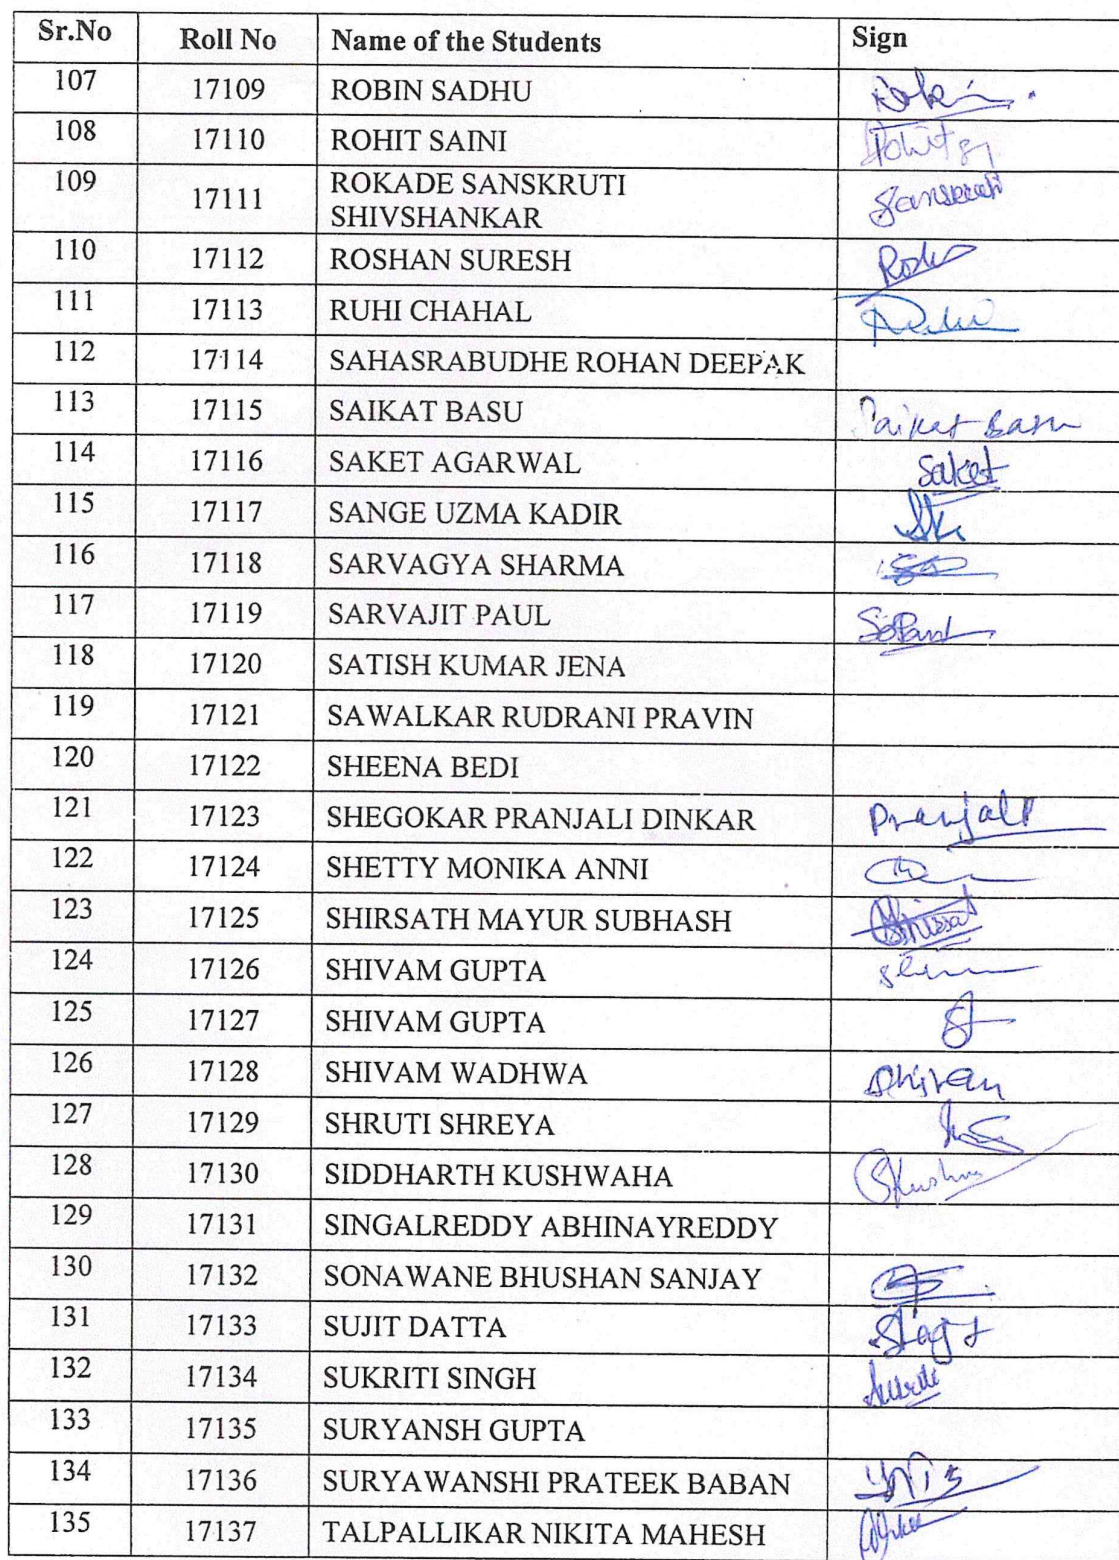 Sr.No Roll No Name of the Students Sign
107 17109 ROBIN SADHU Robin
108 17110 ROHIT SAINI
109 17111 ROKADE SANSKRUTI
SHIVSHANKAR
110 17112 ROSHAN SURESH
111 17113 RUHI CHAHAL Ruhi
112 17114 SAHASRABUDHE ROHAN DEEPAK
113 17115 SAIKAT BASU Saikat Basu
114 17116 SAKET AGARWAL Saket
115 17117 SANGE UZMA KADIR
116 17118 SARVAGYA SHARMA
117 17119 SARVAJIT PAUL
118 17120 SATISH KUMAR JENA
119 17121 SAWALKAR RUDRANI PRAVIN
120 17122 SHEENA BEDI
121 17123 SHEGOKAR PRANJALI DINKAR Pranjali
122 17124 SHETTY MONIKA ANNI
123 17125 SHIRSATH MAYUR SUBHASH
124 17126 SHIVAM GUPTA
125 17127 SHIVAM GUPTA
126 17128 SHIVAM WADHWA Shivam
127 17129 SHRUTI SHREYA
128 17130 SIDDHARTH KUSHWAHA
129 17131 SINGALREDDY ABHINAYREDDY
130 17132 SONAWANE BHUSHAN SANJAY
131 17133 SUJIT DATTA
132 17134 SUKRITI SINGH
133 17135 SURYANSH GUPTA
134 17136 SURYAWANSHI PRATEEK BABAN
135 17137 TALPALLIKAR NIKITA MAHESH